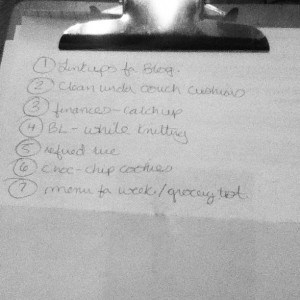 ① Linkups for Blog.
② Clean under couch cushions
③ finances - catchup
④ BL - while knitting
⑤
⑥ choc-chip cookies
⑦ menu for week/grocery list.